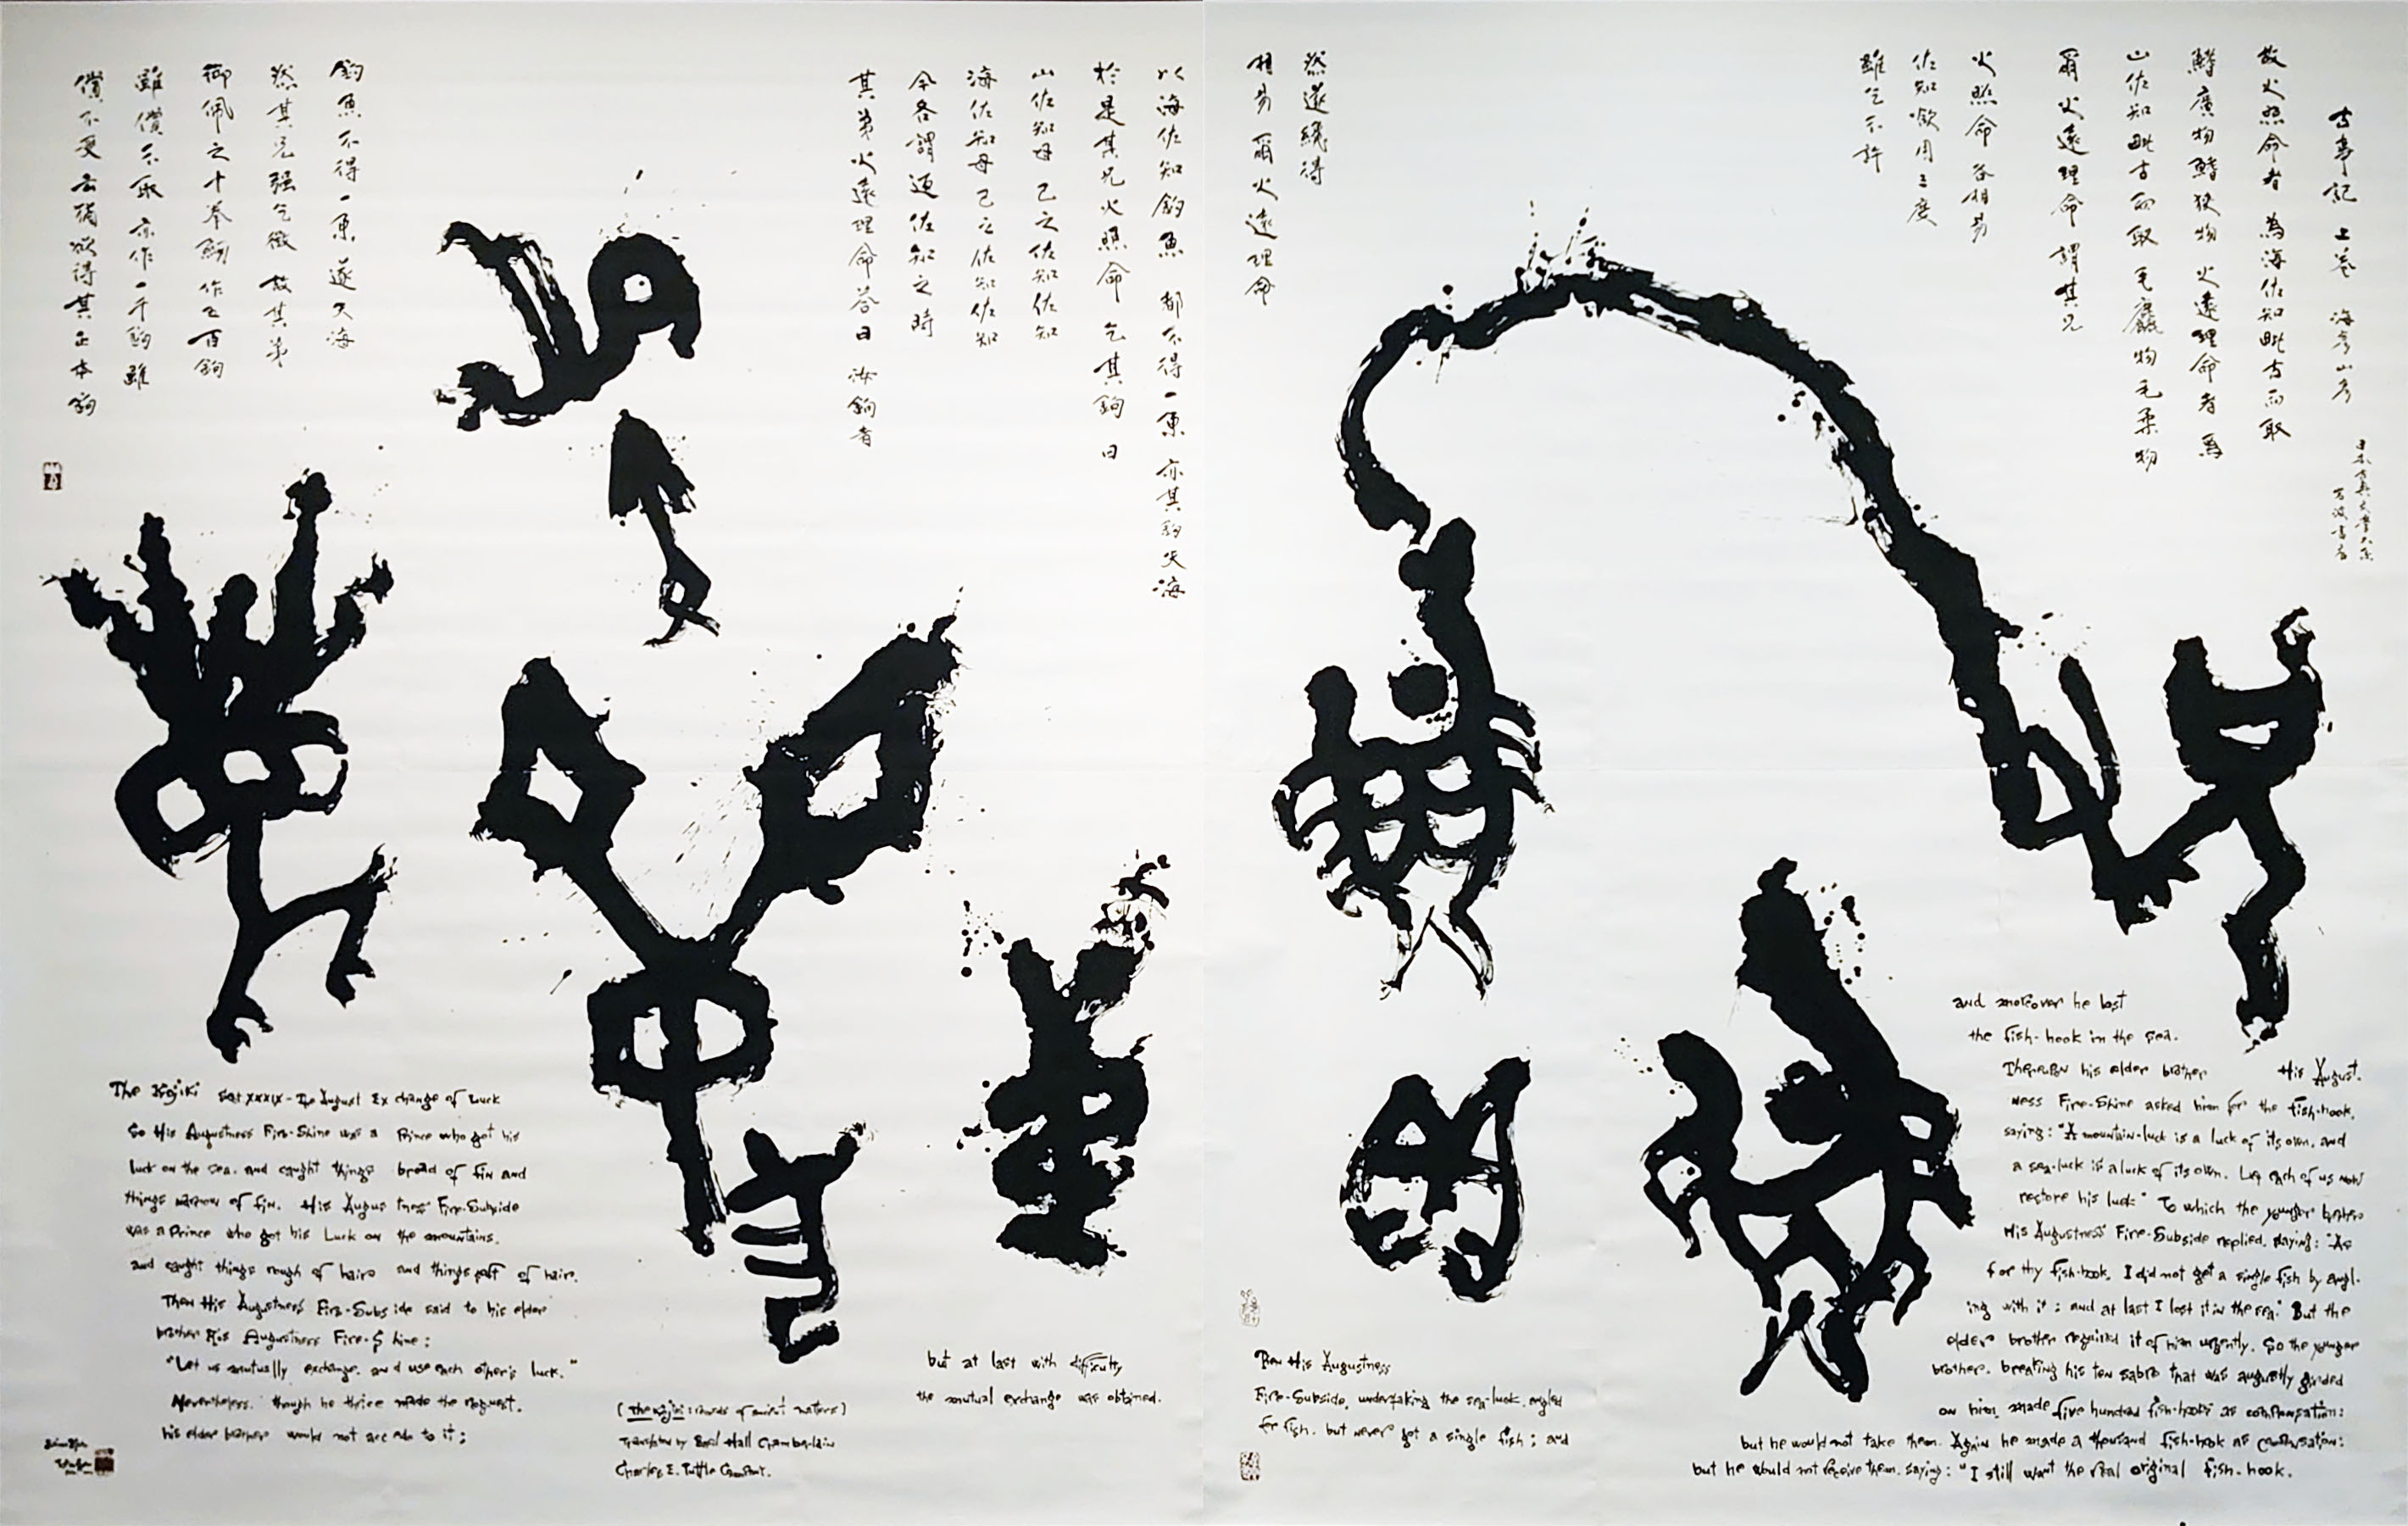 古事記 上巻 海彦山彦
日本古典文学大系
岩波書店
故火照命者 為海佐知毗古而取
鰭廣物鰭狭物 火遠理命者 為
山佐知毗古而取 毛麤物毛柔物
爾火遠理命 謂其兄
火照命 各相易
佐知欲用 三度
雖乞不許
然遂纔得
相易 爾火遠理命
以海佐知釣魚 都不得一魚 亦其鉤失海
於是其兄火照命 乞其鉤 曰
山佐知母 己之佐知佐知
海佐知母己之佐知佐知
今各謂返佐知之時
其弟火遠理命答曰 汝鉤者
釣魚不得一魚 遂失海
然其兄强乞徴 故其弟
御佩之十拳剣 作五百鉤
雖償不取 亦作一千鉤 雖
償不受 云猶欲得其正本鉤
The Kojiki Sect XXXIX - The August Exchange of Luck
So His Augustness Fire-Shine was a Prince who got his
luck on the sea. and caught things broad of fin and
things narrow of fin. His Augustness Fire-Subside
was a Prince who got his Luck on the mountains.
and caught things rough of hair and things soft of hair.
Then His Augustness Fire-Subside said to his elder
brother His Augustness Fire-Shine:
"Let us mutually exchange. and use each other's luck."
Nevertheless. though he thrice made the request.
his elder brother would not accede to it;
but at last with difficulty
the mutual exchange was obtained.
(The Kojiki: records of ancient matters)
Translated by Basil Hall Chamberlain
Charles E. Tuttle Company.
Then His Augustness
Fire-Subside, undertaking the sea-luck, angled
for fish. but never got a single fish; and
and moreover he lost
the fish-hook in the sea.
Thereupon his elder brother His August-
ness Fire-Shine asked him for the fish-hook,
saying: "A mountain-luck is a luck of its own. and
a sea-luck is a luck of its own. Let each of us now
restore his luck" To which the younger brother
His Augustness Fire-Subside replied. saying: "As
for thy fish-hook, I did not get a single fish by angl-
ing with it; and at last I lost it in the sea." But the
elder brother required it of him urgently. So the younger
brother. breaking his ten sabre that was augustly girded
on him, made five hundred fish-hooks as compensation:
but he would not take them. Again he made a thousand fish-hook as compensation:
but he would not receive them, saying: "I still want the real original fish-hook.